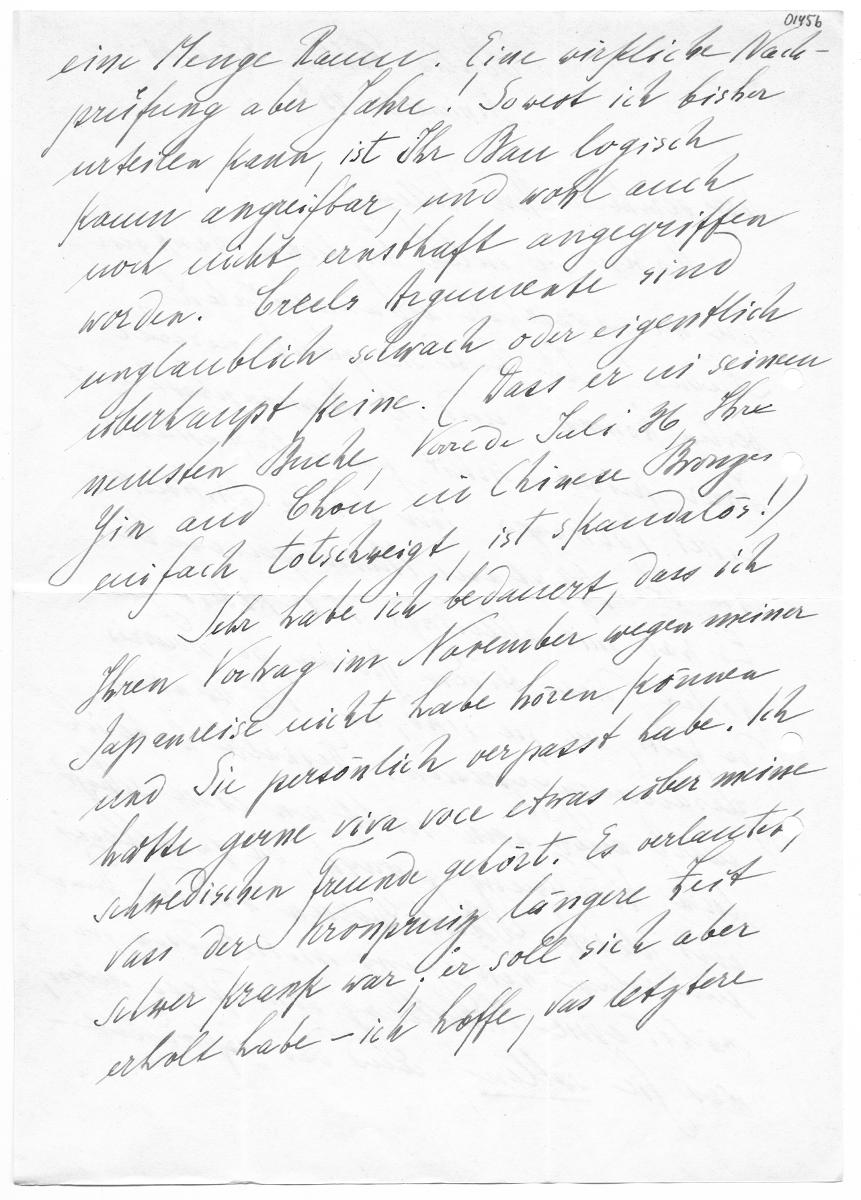 01456
eine Menge Raum. Eine wirkliche Nach-
prüfung aber Jahre! Soweit ich bisher
urteilen kann, ist Ihr Bau logisch
kaum angreifbar, und wohl auch
noch nicht ernsthaft angegriffen
worden. Creels Argumente sind
unglaublich schwach oder eigentlich
überhaupt keine. (Dass er in seinem
neuesten Buche, Vorrede Juli 36, Ihre
Yin and Chou in Chinese Bronzes
einfach totschweigt, ist skandalös!)
Sehr habe ich bedauert, dass ich
Ihren Vortrag im November wegen meiner
Japanreise nicht habe hören können
und Sie persönlich verpasst habe. Ich
hätte gerne viva voce etwas über meine
schwedischen Freunde gehört. Es verlautet,
dass der Kronprinz längere Zeit
schwer krank war; er soll sich aber
erholt habe – ich hoffe, das letztere